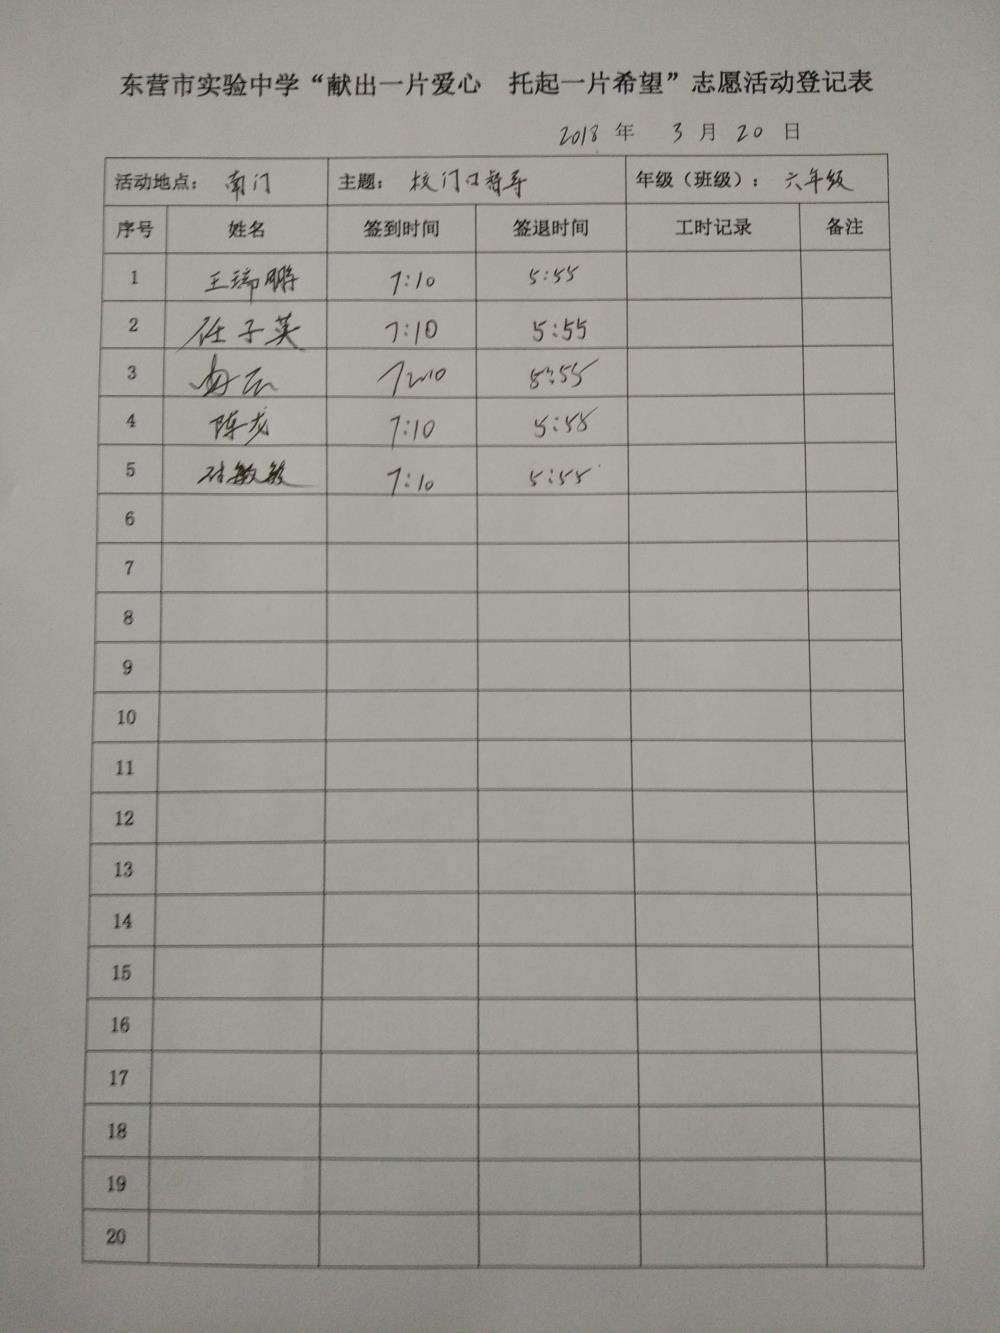 东营市实验中学“献出一片爱心 托起一片希望”志愿活动登记表
2018 年 3 月 20 日
活动地点： 南门 主题： 校门口督导 年级（班级）： 六年级
序号 姓名 签到时间 签退时间 工时记录 备注
1 王瑞鹏 7:10 5:55
2 任子英 7:10 5:55
3 7:10 5:55
4 陈龙 7:10 5:55
5 敏敏 7:10 5:55
6
7
8
9
10
11
12
13
14
15
16
17
18
19
20